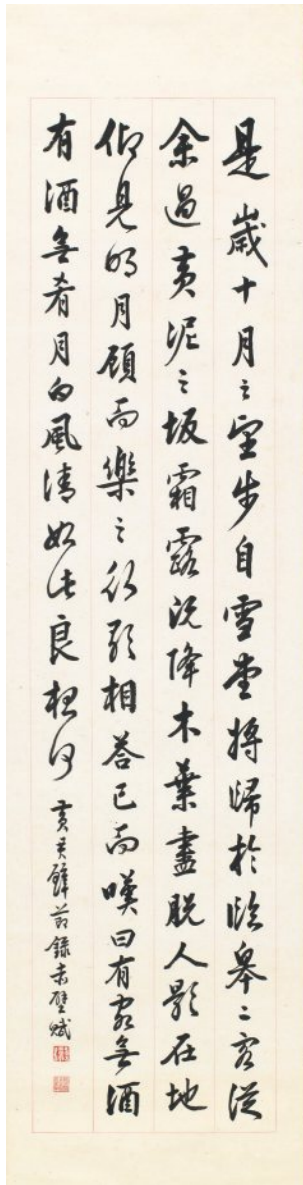 是歲十月之望步自雪堂將歸於臨皋二客從
余過黃泥之坂霜露既降木葉盡脫人影在地
仰見明月顧而樂之行歌相答已而嘆曰有客無酒
有酒無肴月白風清如此良夜何
黃君璧節錄赤壁賦